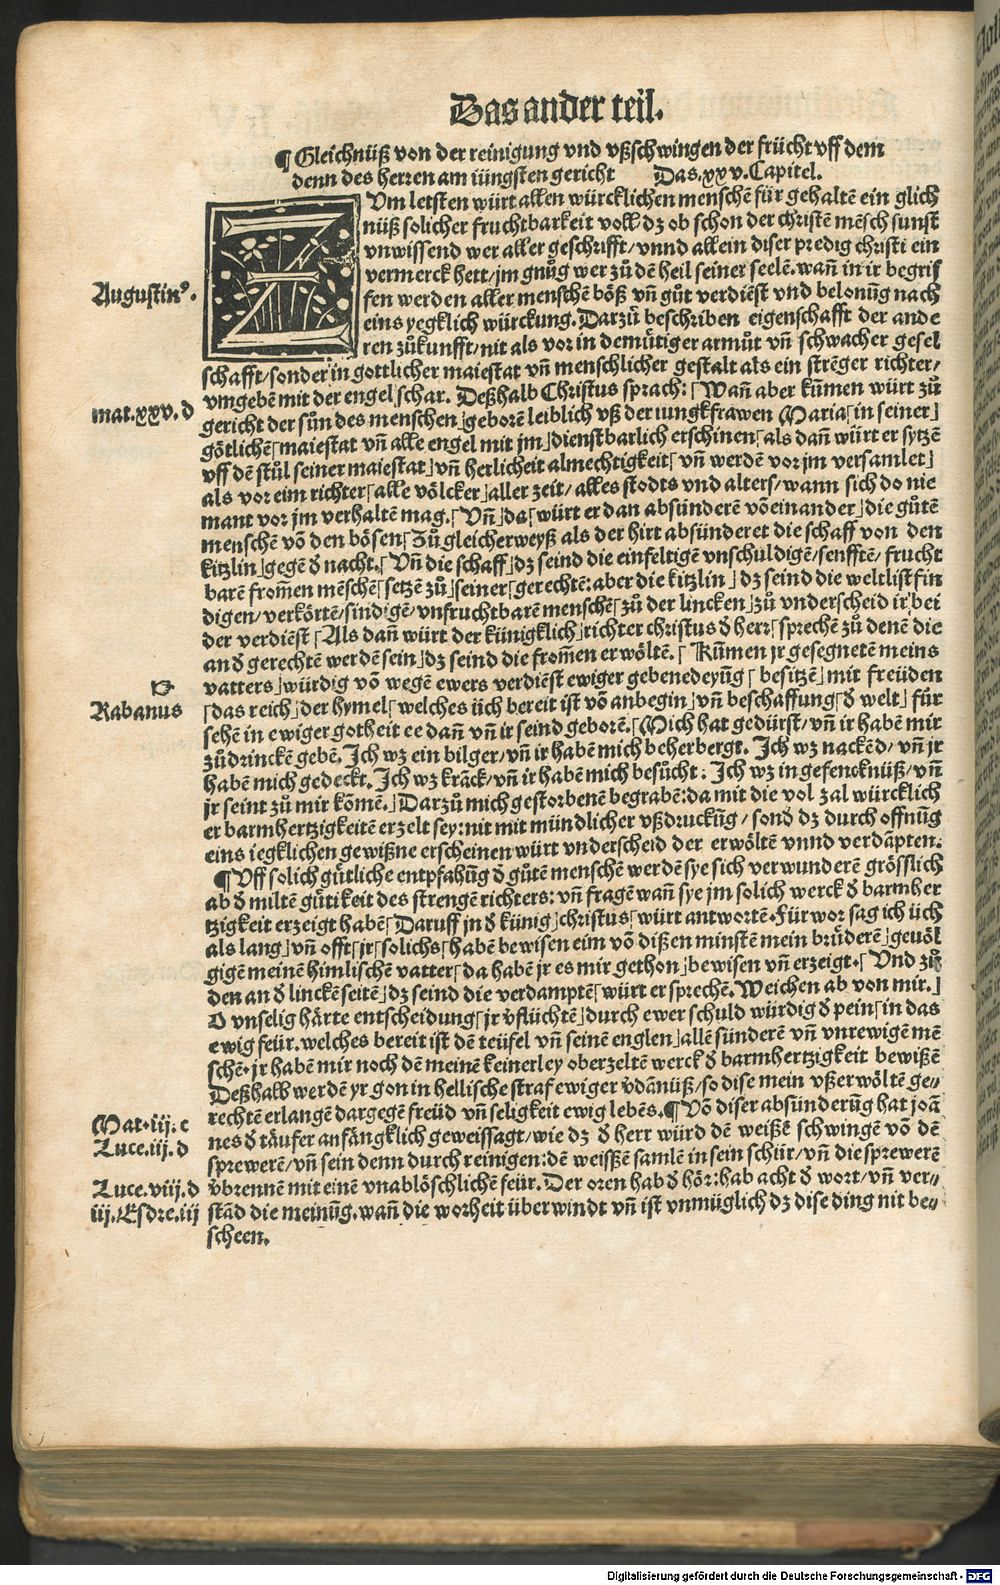 Das ander teil.
¶ Gleichnüß von der reinigung vnd vßschwingen der frücht vff dem
denn des herren am iüngsten gericht Das.xxv.Capitel.
ZVm letsten würt allen würcklichen menschē für gehaltē ein glich
nüß solicher fruchtbarkeit voll/ dz ob schon der christē mēsch sunst
vnwissend wer aller geschrifft/ vnnd allein diser predig christi ein
vermerck hett/ jm gnůg wer zů dē heil seiner seelē. wañ in ir begrif
Augustin⁹.
fen werden aller menschē böß vñ gůt verdiēst vnd belonūg nach
eins yegklich würckung. Darzů beschriben eigenschafft der ande
ren zůkunfft/ nit als vor in demütiger armůt vñ schwacher gesel
schafft/ sonder in gottlicher maiestat vñ menschlicher gestalt als ein strēger richter/
vmgebē mit der engel schar. Deßhalb Christus sprach: ⌈Wañ aber kum̃en würt zů
mat.xxv.d
gericht der sůn des menschen⌋ geborē leiblich vß der iungkfrawen Maria⌈ in seiner⌋
götlichē⌈ maiestat vñ alle engel mit jm⌋ dienstbarlich erschinen⌈ als dañ würt er sytzē
vff dē stůl seiner maiestat⌋ vñ herlicheit almechtigkeit⌈ vñ werdē vor jm versamlet⌋
als vor eim richter⌈ alle völcker⌋ aller zeit/ alles stodts vnd alters/ wann sich do nie
mant vor jm verhaltē mag.⌈ Vñ⌋ da⌈ würt er dan absünderē vō einander⌋ die gůtē
menschē vō den bösen⌈ Zů gleicherweyß als der hirt absünderet die schaff von den
kitzlin⌋ gegē ð nacht.⌈ Vñ die schaff⌋ dz seind die einfeltigē vnschuldigē/ senfftē/ frucht
barē from̃en mēschē⌈ setzē zů⌋ seiner⌈ gerechtē: aber die kitzlin⌋ dz seind die weltlist fin
digen/ verkörtē/ sindigē/ vnfruchtbarē menschē⌈ zů der lincken⌋ zů vnderscheid ir bei
der verdiēst⌈ Als dañ würt der künigklich⌋ richter christus ð herr⌈ sprechē zů denē die
an ð gerechtē werdē sein⌋ dz seind die from̃en erwöltē.⌈ Kum̃en jr gesegnetē meins
vatters⌋ würdig vō wegē ewers verdiēst ewiger gebenedeyūg⌈ besitzē⌋ mit freüden
☞
Rabanus
⌈das reich⌋ der hymel⌈ welches üch bereit ist vō anbegin⌋ vñ beschaffung⌈ ð welt⌋ für
sehē in ewiger gotheit ee dañ vñ ir seind geborē.⌈ Mich hat gedürst/ vñ ir habē mir
zů drinckē gebē. Ich wz ein bilger/ vñ ir habē mich beherbergt. Ich wz nackēd/ vñ jr
habē mich gedeckt. Ich wz krāck/ vñ ir habē mich besůcht: Ich wz in gefencknüß/ vñ
jr seint zů mir kōmē.⌋ Darzů mich gestorbenē begrabē: da mit die vol zal würcklich
er barmhertzigkeitē erzelt sey: nit mit mündlicher vßdruckūg/ sond dz durch offnūg
eins iegklichen gewißne erscheinen würt vnderscheid der erwöltē vnnd verdāpten.
¶ Vff solich gütliche entpfahūg ð gůtē menschē werdē sye sich verwunderē grösslich
ab ð miltē gütikeit des strengē richters: vñ fragē wañ sye jm solich werck ð barmher
tzigkeit erzeigt habē⌈ Daruff jn ð künig⌋ christus⌈ würt antwortē. Für wor sag ich üch
als lang⌋ vñ offt⌈ jr⌈ solichs⌈ habē bewisen eim vō dißen minstē mein brüderē⌋ geuöl
gigē meinē himlischē vatter⌈ da habē jr es mir gethon⌋ bewisen vñ erzeigt.⌈ Vnd zů
den an ð linckē seitē⌋ dz seind die verdamptē⌈ würt er sprechē. Weichen ab von mir.⌋
O vnselig härte entscheidung⌈ jr v̄flüchtē⌋ durch ewer schuld würdig ð pein⌈ in das
ewig feür. welches bereit ist dē teüfel vñ seinē englen⌋ allē sünderē vñ vnrewigē mē
schē. jr habē mir noch dē meinē keinerley oberzeltē werck ð barmhertzigkeit bewißē
Deßhalb werdē yr gon in hellische straf ewiger v̄dānüß/ so dise mein vßerwöltē ge⸗
rechtē erlangē dargegē freüd vñ seligkeit ewig lebēs. ¶ Vō diser absünderūg hat joā
Mat.iij.c
nes ð täufer anfängklich geweissagt/ wie dz ð herr würd dē weißē schwingē vō dē
Luce.iij.d
sprewerē/ vñ sein denn durch reinigen: dē weissē samlē in sein schür/ vñ die sprewerē
Luce.viij.d
v̄brennē mit einē vnablöschlichē feür. Der oren hab ð hör: hab acht ð wort/ vñ ver⸗
iij.Esdre.iij
stād die meinūg. wañ die worheit überwindt vñ ist vnmüglich dz dise ding nit be⸗
scheen.
Digitalisierung gefördert durch die Deutsche Forschungsgemeinschaft - DFG